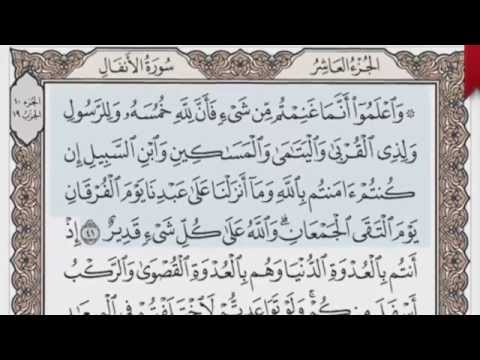 الجُزْءُ العَاشِرُ
سُورَةُ الأَنفَال
الجزء ١٠
الحزب ١٩
۞ وَٱعْلَمُوٓا۟ أَنَّمَا غَنِمْتُم مِّن شَىْءٍ فَأَنَّ لِلَّهِ خُمُسَهُۥ وَلِلرَّسُولِ
وَلِذِى ٱلْقُرْبَىٰ وَٱلْيَتَـٰمَىٰ وَٱلْمَسَـٰكِينِ وَٱبْنِ ٱلسَّبِيلِ إِن
كُنتُمْ ءَامَنتُم بِٱللَّهِ وَمَآ أَنزَلْنَا عَلَىٰ عَبْدِنَا يَوْمَ ٱلْفُرْقَانِ
يَوْمَ ٱلْتَقَى ٱلْجَمْعَانِ ۗ وَٱللَّهُ عَلَىٰ كُلِّ شَىْءٍ قَدِيرٌ ٤١ إِذْ
أَنتُم بِٱلْعُدْوَةِ ٱلدُّنْيَا وَهُم بِٱلْعُدْوَةِ ٱلْقُصْوَىٰ وَٱلرَّكْبُ
أَسْفَلَ مِنكُمْ ۚ وَلَوْ تَوَاعَدتُّمْ لَٱخْتَلَفْتُمْ فِى ٱلْمِيعَـٰدِ